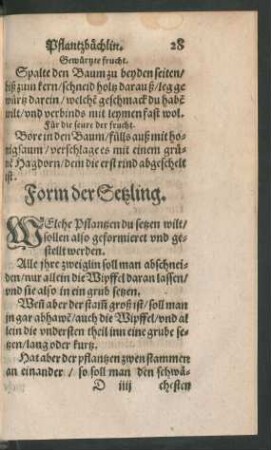 Pflantzbüchlin. 28
Gewürtzte frucht.
Spalte den Baum zu beyden seiten/
biß zum kern/schneid holtz darauß/leg ge
würtz darein/welchē geschmack du habē
wilt/vnd verbinds mit leymen fast wol.
Für die seure der frucht.
Bore in den Baum/fülls auß mit ho-
nigsaum/verschlage es mit einem grü-
nē Hagdorn/dem die erst rind abgeschelt
ist.
Form der Setzling.
WElche Pflantzen du setzen wilt/
sollen also geformieret vnd ge-
stellt werden.
Alle jhre zweiglin soll man abschnei-
den/nur allein die Wipffel daran lassen/
vnd sie also in ein grub setzen.
Weñ aber der stam̃ groß ist/soll man
jn gar abhawē/auch die Wipffel/vnd al
lein die vndersten theil inn eine grube se-
tzen/lang oder kurtz.
Hat aber der pflantzen zwen stammen
an einander/so soll man den schwä-
D iiij chesten